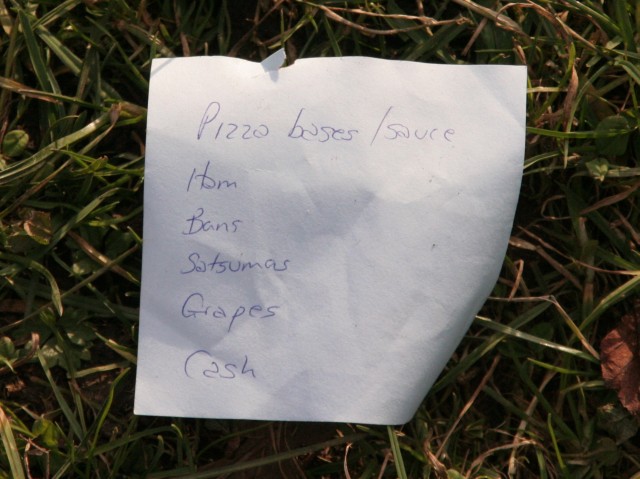 Pizza bases / sauce
Ham
Bans
Satsumas
Grapes
Cash